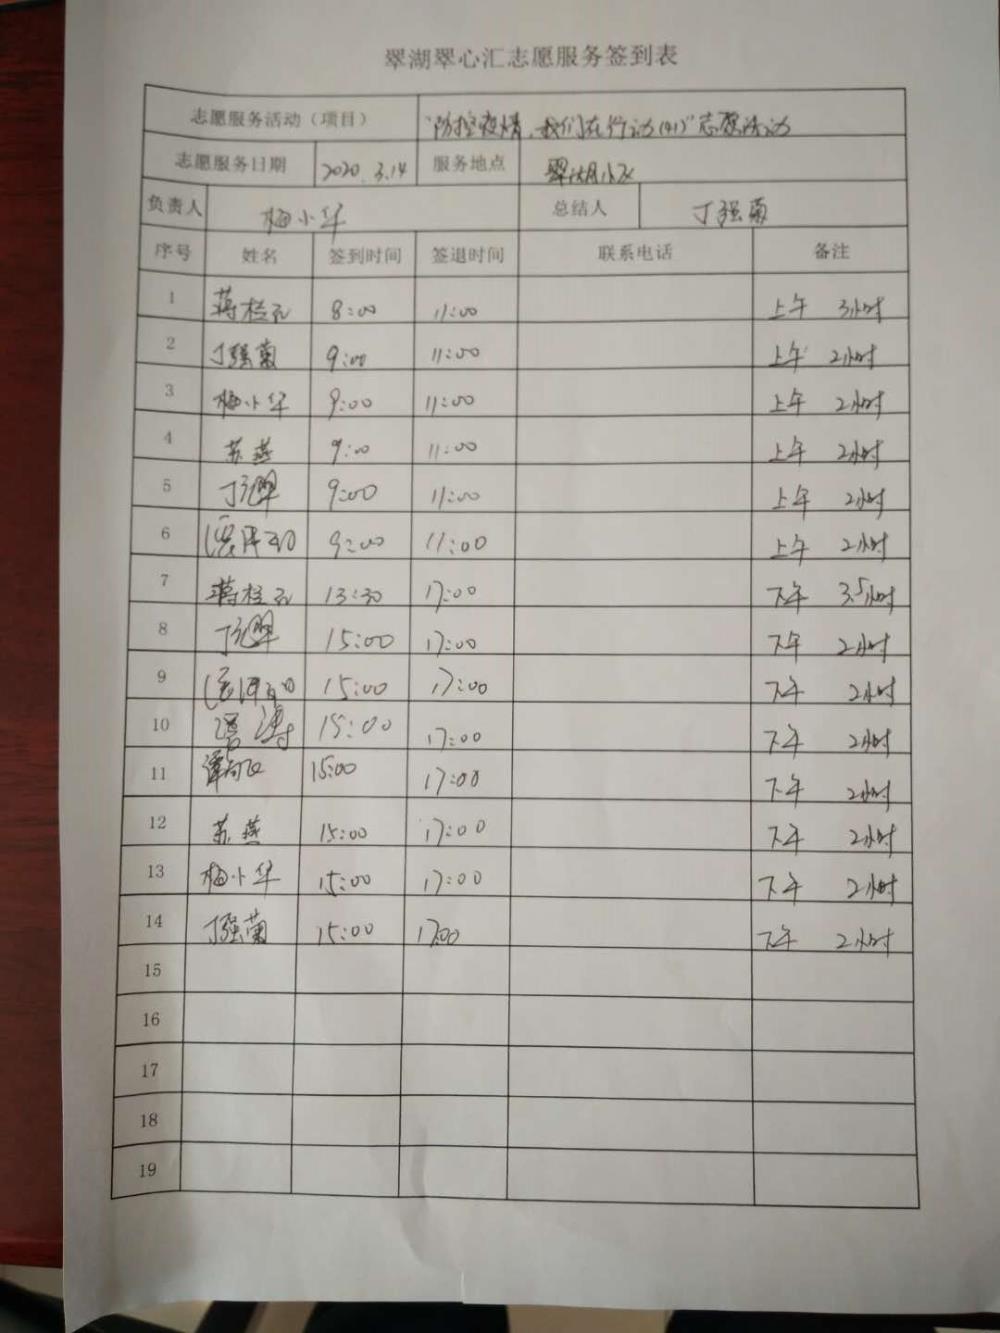 翠湖翠心汇志愿服务签到表
志愿服务活动（项目） "防控疫情，我们在行动(41)"志愿活动
志愿服务日期 2020.3.14 服务地点 翠湖小区
负责人 梅小华 总结人 丁强菊
序号 姓名 签到时间 签退时间 联系电话 备注
1 蒋桂元 8:00 11:00 上午 3小时
2 丁强菊 9:00 11:00 上午 2小时
3 梅小华 9:00 11:00 上午 2小时
4 苏燕 9:00 11:00 上午 2小时
5 9:00 11:00 上午 2小时
6 9:00 11:00 上午 2小时
7 蒋桂元 13:30 17:00 下午 3.5小时
8 15:00 17:00 下午 2小时
9 15:00 17:00 下午 2小时
10 15:00 17:00 下午 2小时
11 15:00 17:00 下午 2小时
12 苏燕 15:00 17:00 下午 2小时
13 梅小华 15:00 17:00 下午 2小时
14 丁强菊 15:00 17:00 下午 2小时
15
16
17
18
19